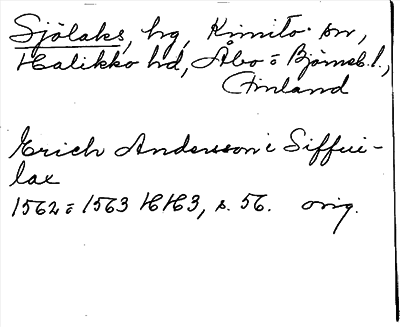 Sjölaks, hg, Kimito sn,
Halikko hd, Åbo = Björneb. l.,
Finland
Erich Andersson i Siffui-
lax
1562 = 1563 HH3, s. 56. orig.